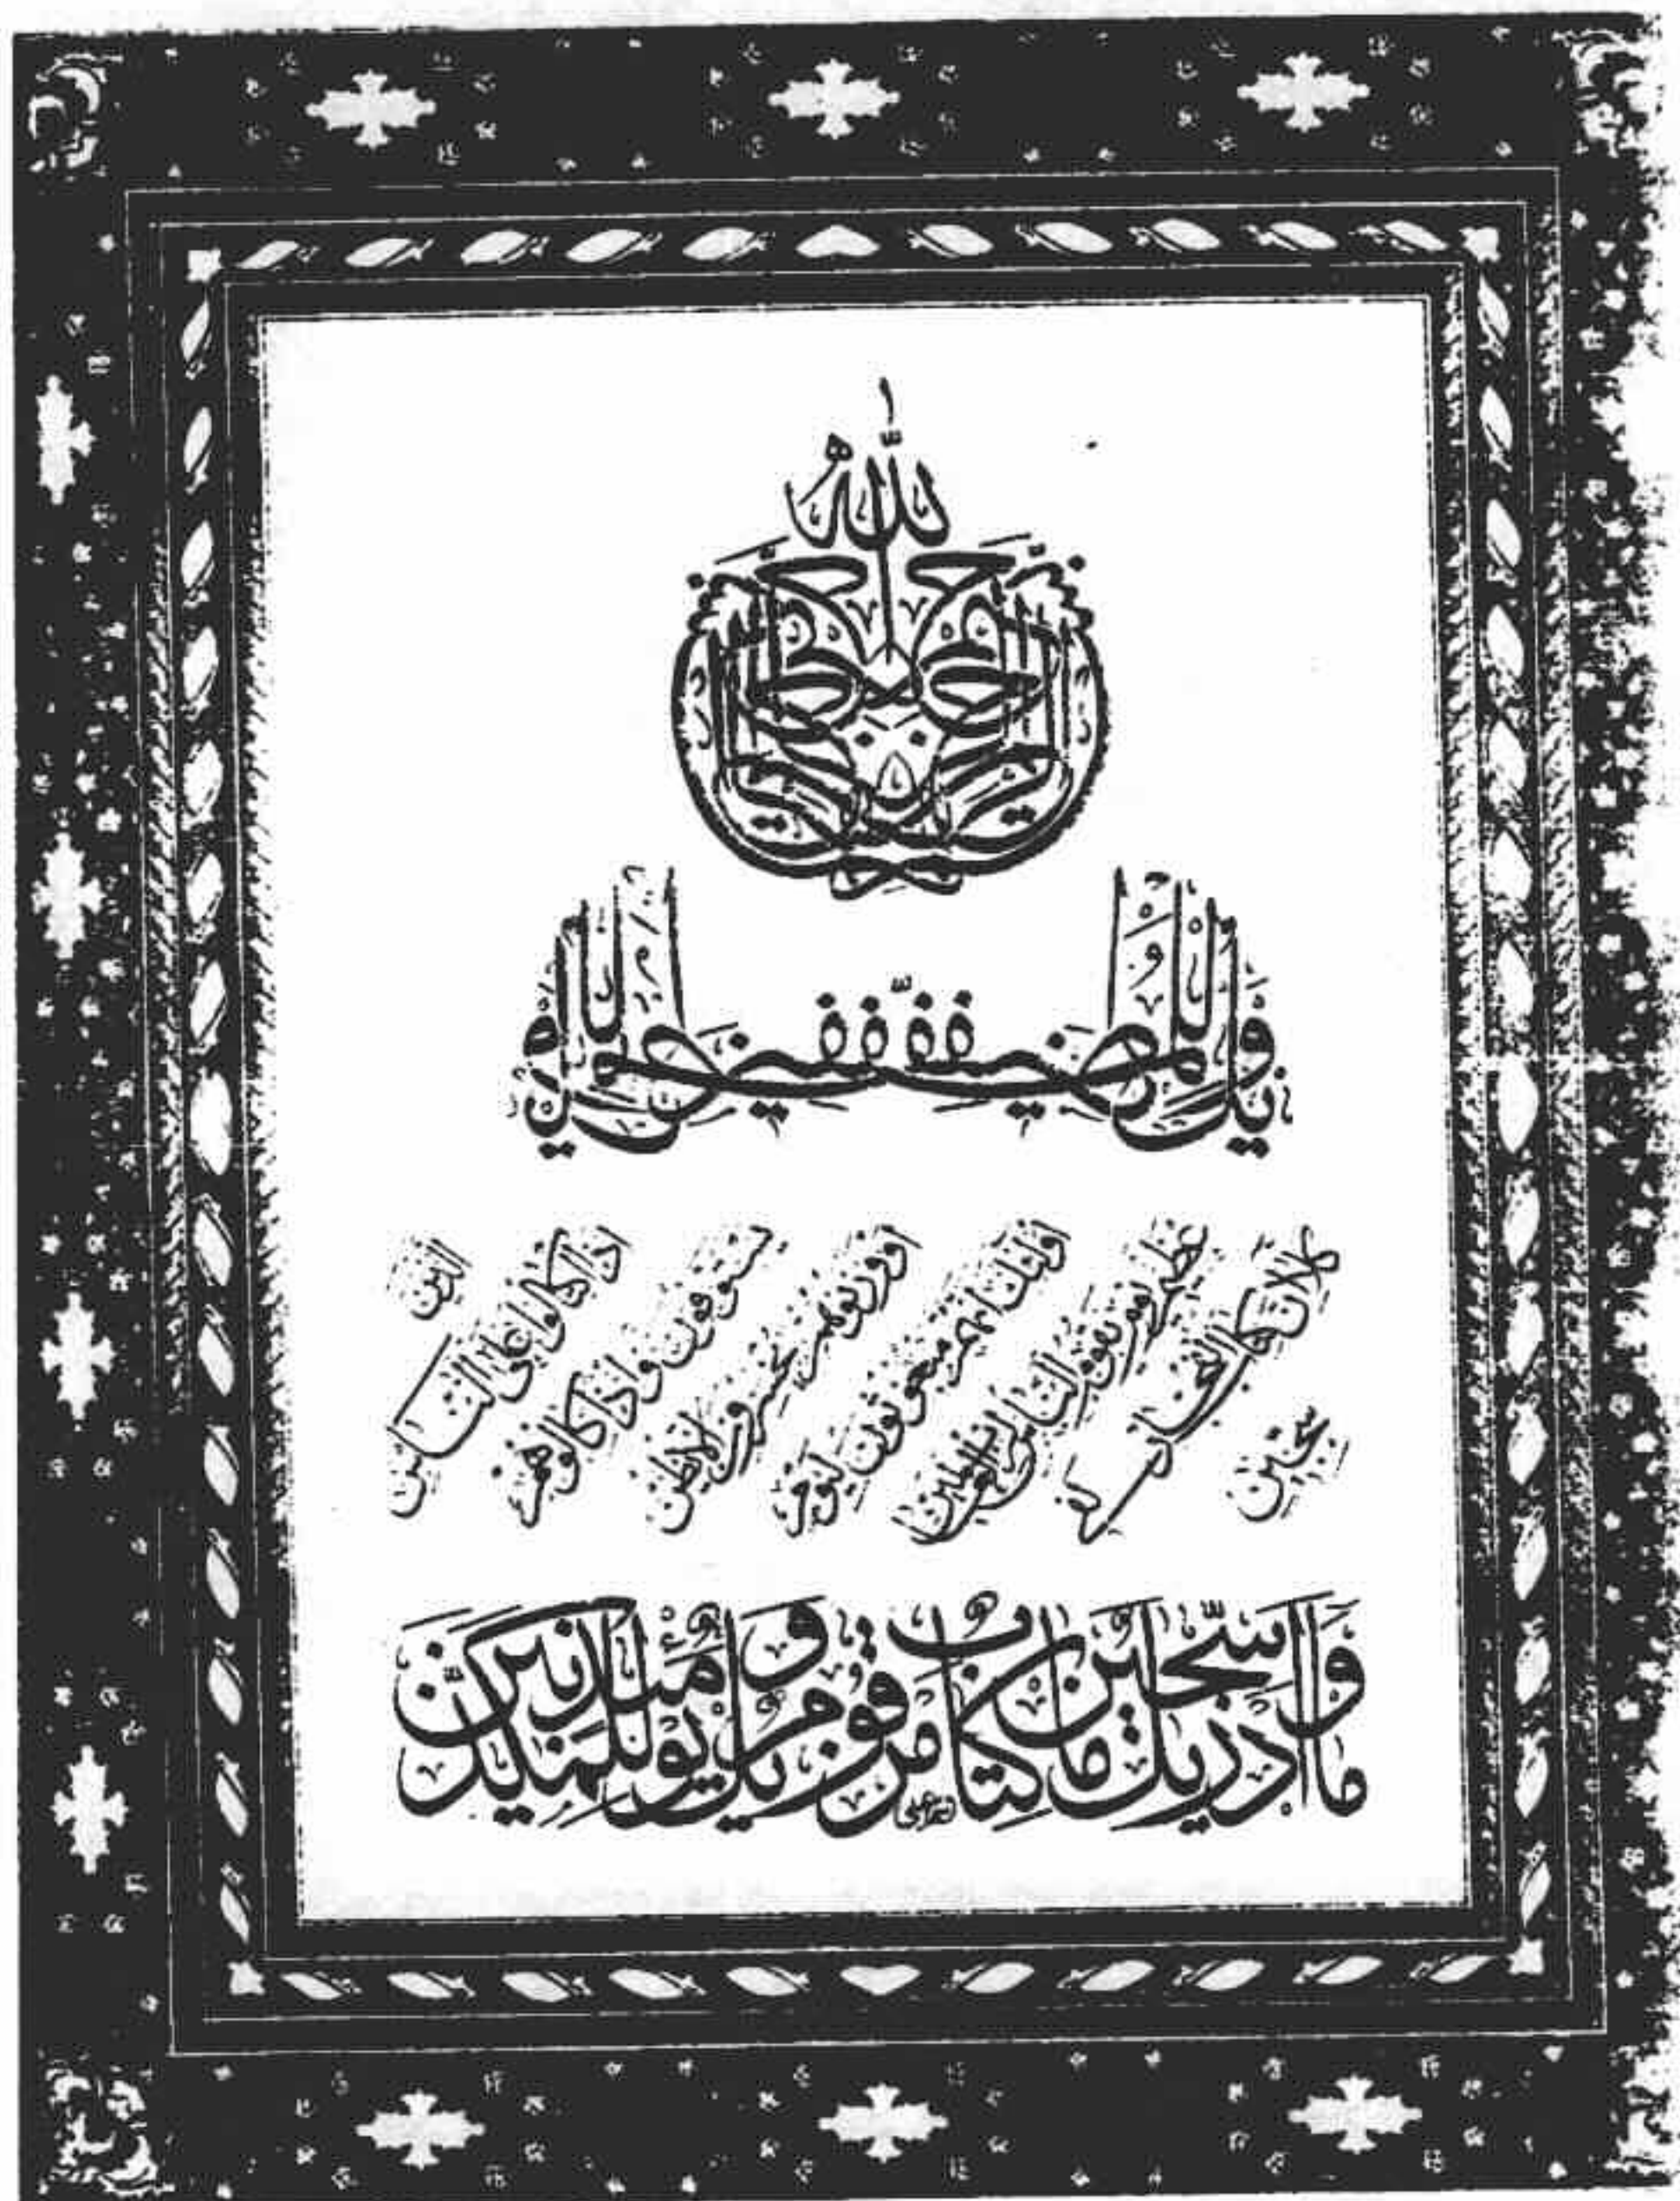 بسم الله الرحمن الرحيم
ويل للمطففين
الذين
اذا اكتالوا على الناس
يستوفون واذا كالوهم
او وزنوهم يخسرون الا يظن
اولئك انهم مبعوثون ليوم
عظيم يوم يقوم الناس لرب العالمين
كلا ان كتاب الفجار لفى
سجين
وما ادريك ما سجين كتاب مرقوم ويل يومئذ للمكذبين